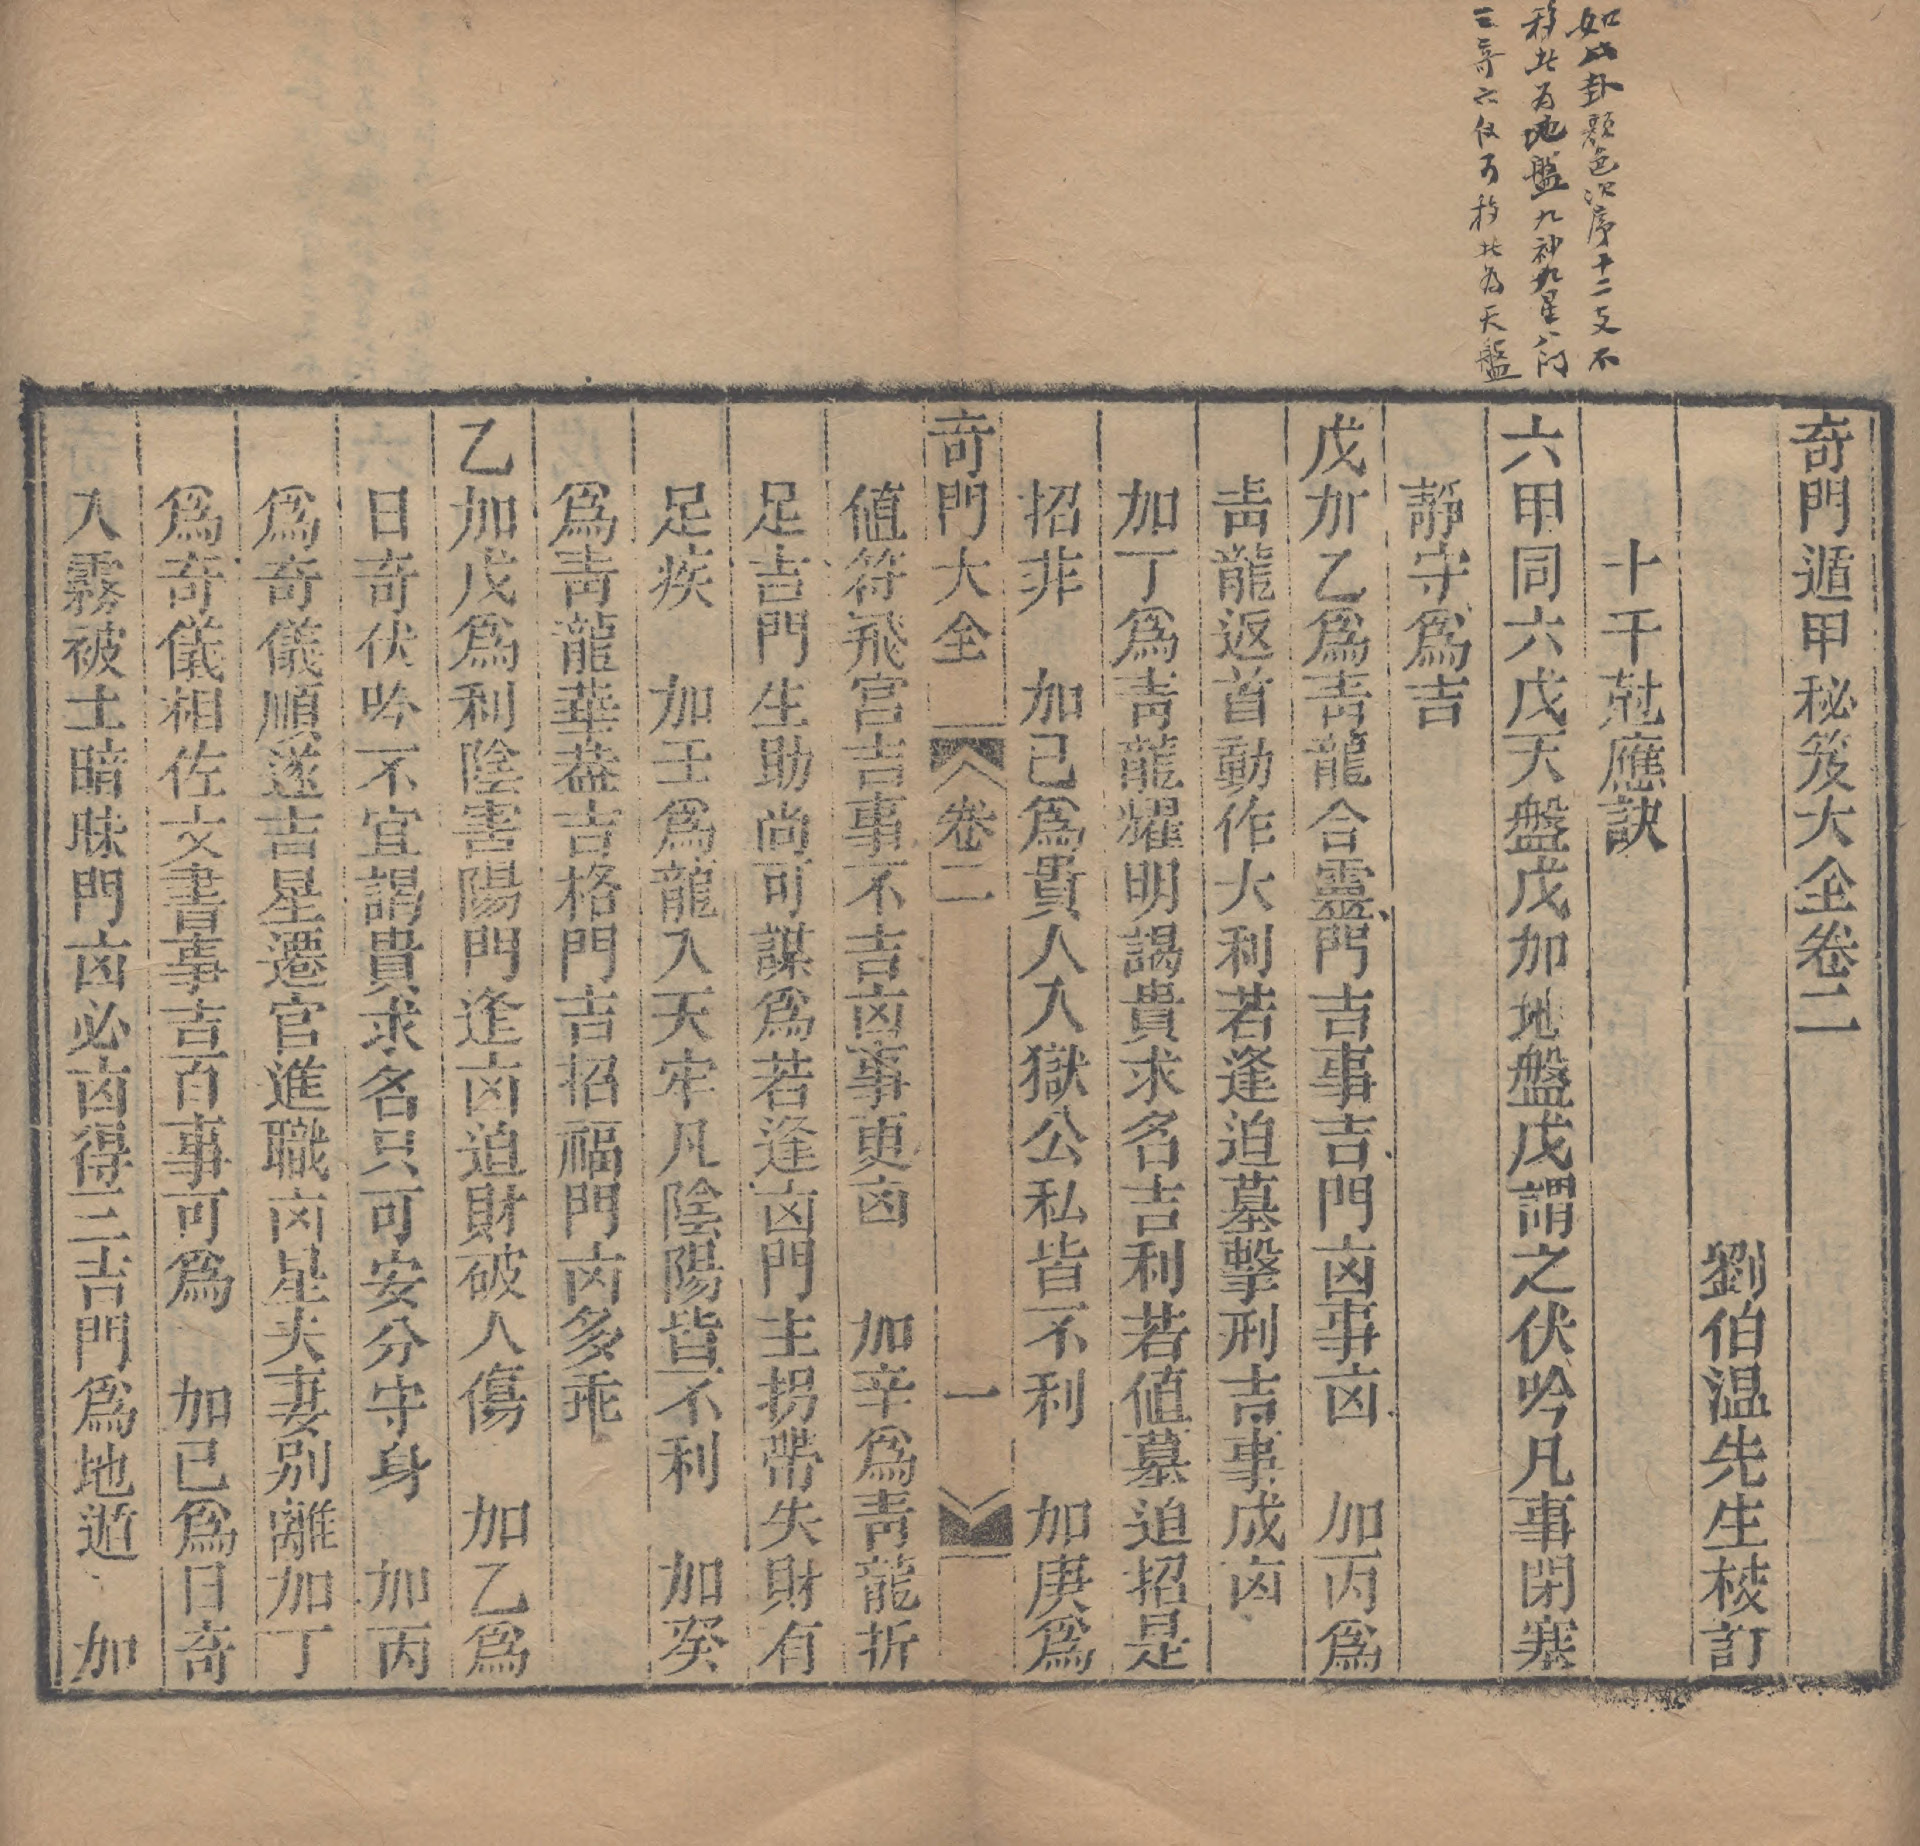 如成卦顏色次序十二支不
移此為地盤九神九星八门
三奇六仪可移此為天盤
奇門遁甲秘笈大全卷二
劉伯温先生校訂
十干尅應訣
六甲同六戊天盤戊加地盤戊謂之伏吟凡事閉塞
靜守爲吉
戊加乙爲靑龍合靈門吉事吉門凶事凶　加丙爲
靑龍返首動作大利若逢迫墓擊刑吉事成凶
加丁爲靑龍耀明謁貴求名吉利若値墓迫招是
招非　加己爲貴人入獄公私皆不利　加庚爲
奇門大全　卷二　一
値符飛宮吉事不吉凶事更凶　加辛爲靑龍折
足吉門生助尚可謀爲若逢凶門主拐帶失財有
足疾　加壬爲龍入天牢凡陰陽皆不利　加癸
爲靑龍華葢吉格門吉招福門凶多乖
乙加戊爲利陰害陽門逢凶迫財破人傷　加乙爲
日奇伏吟不宜謁貴求名只可安分守身　加丙
爲奇儀順遂吉星遷官進職凶星夫妻別離加丁
爲奇儀相佐文書事吉百事可爲　加己爲日奇
入霧被土暗昧門凶必凶得三吉門爲地遁　加